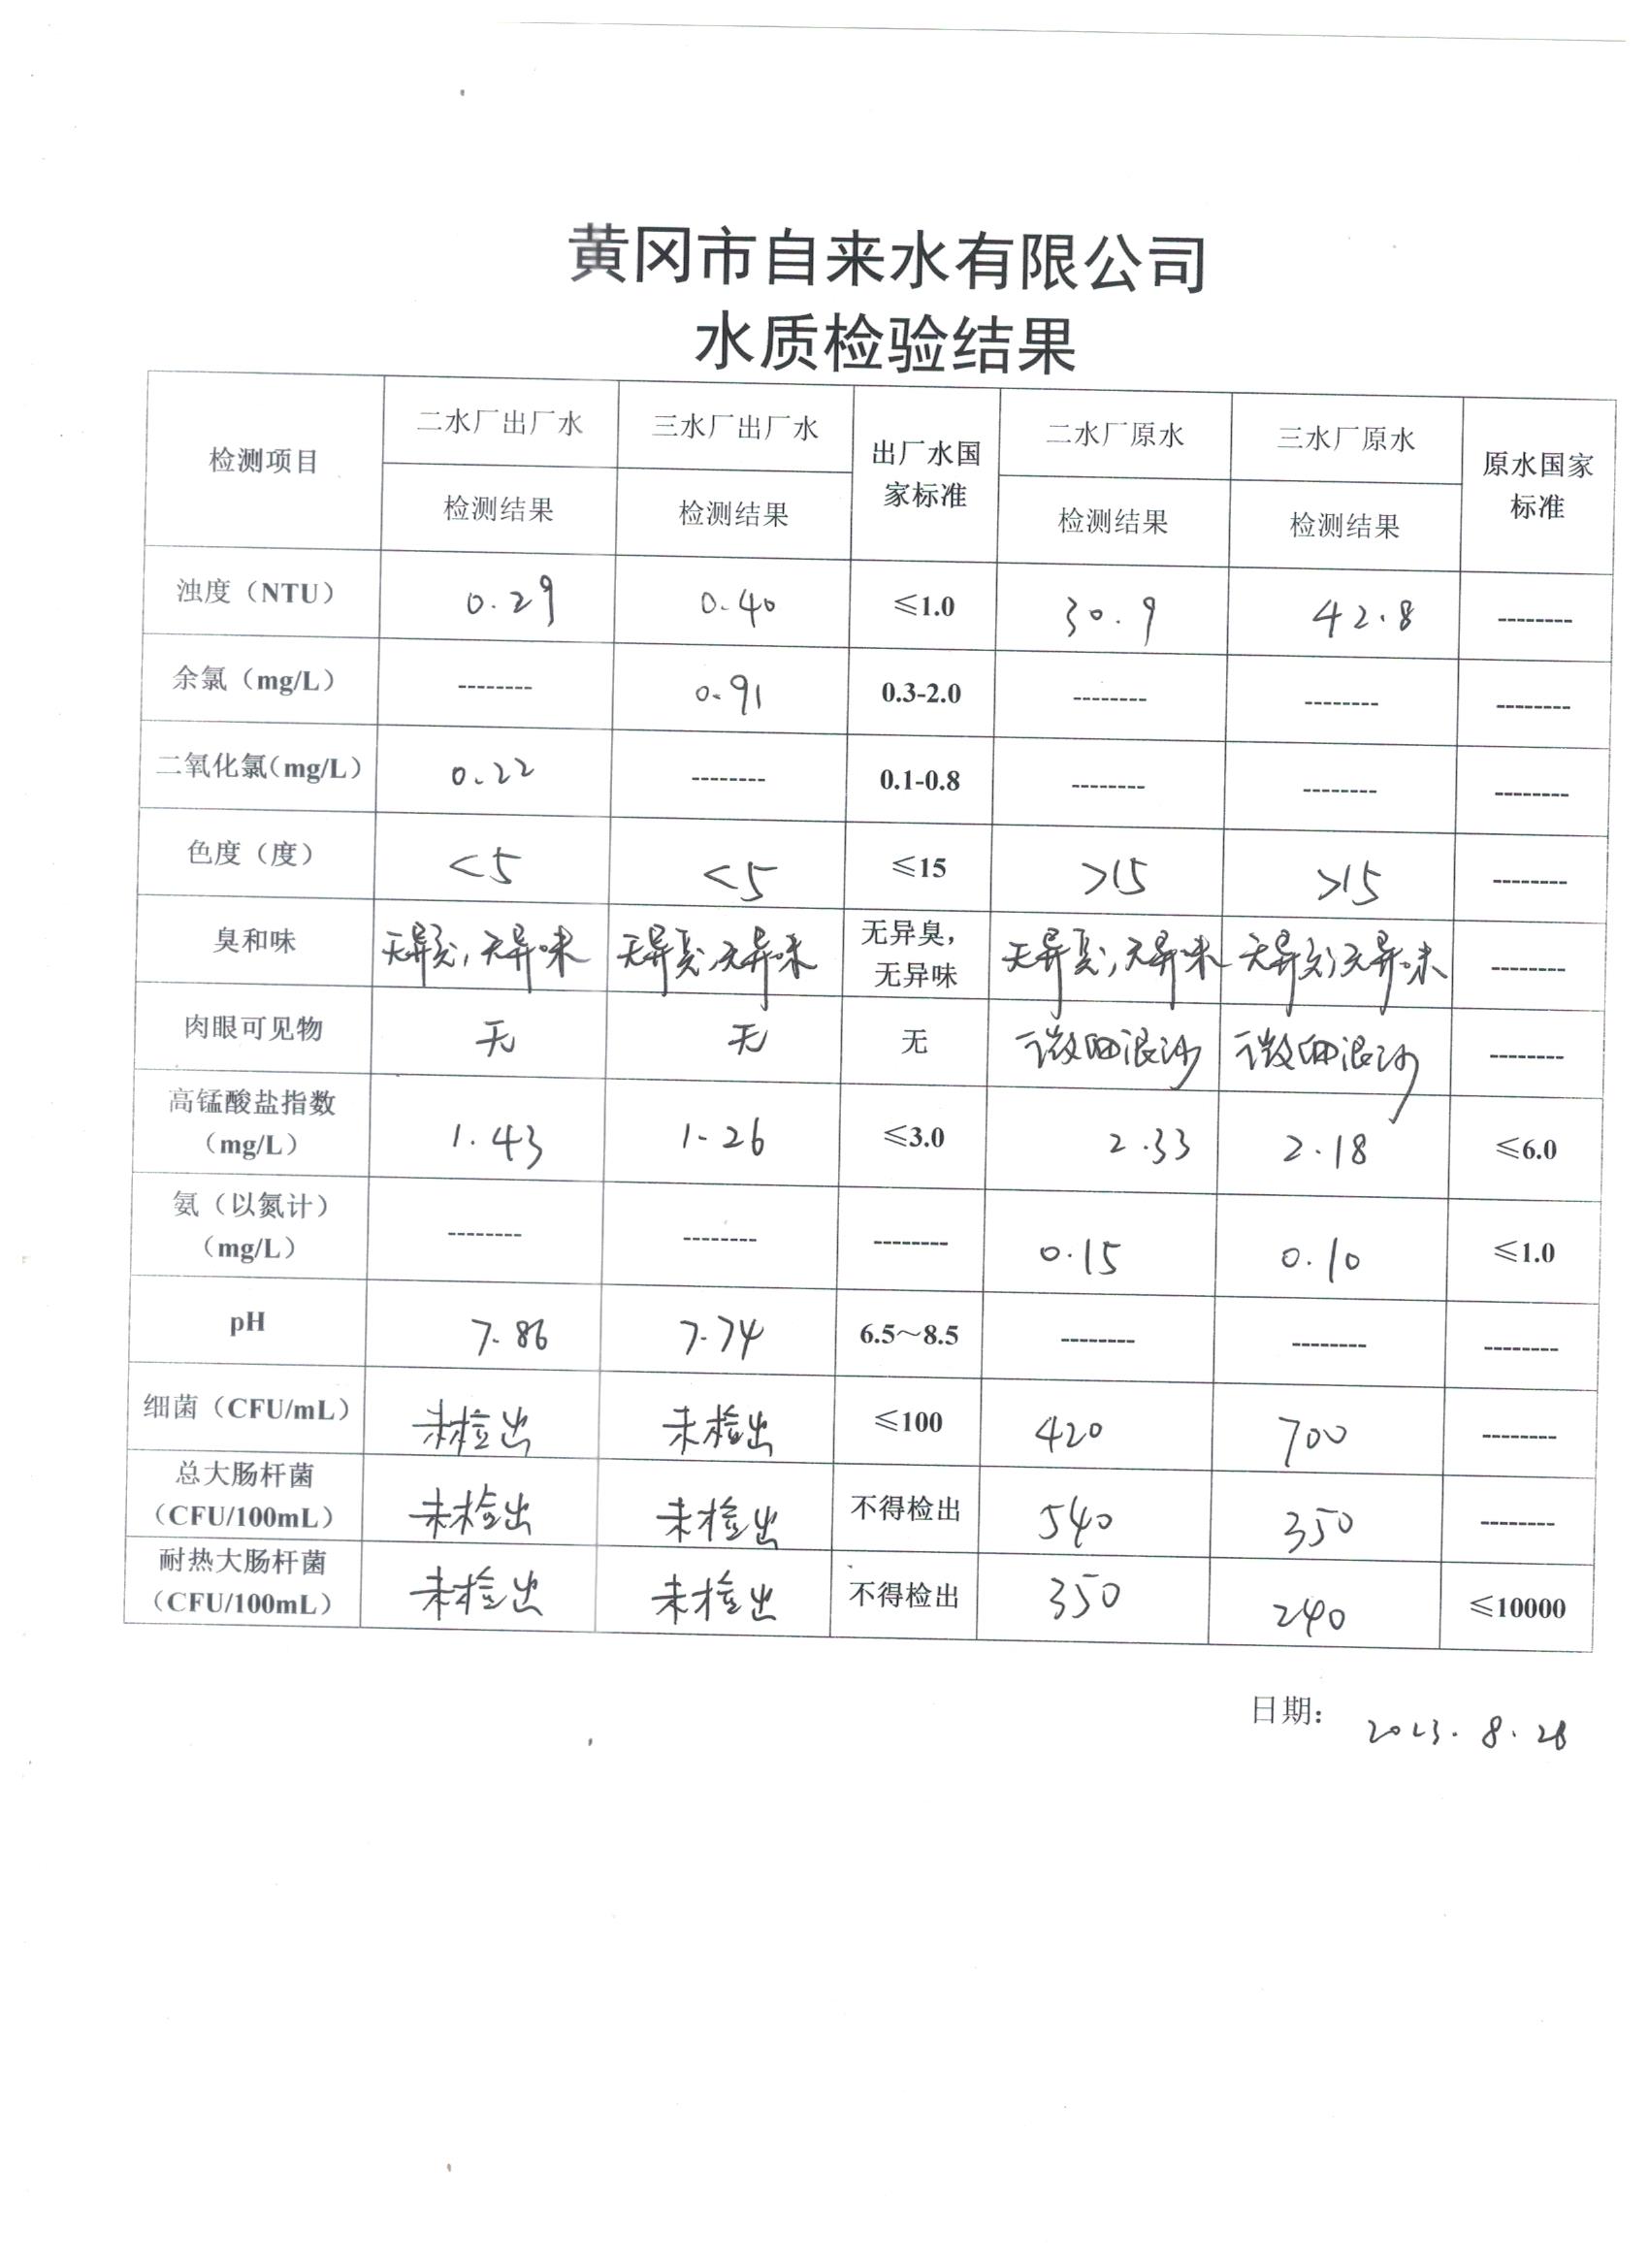 黄冈市自来水有限公司
水质检验结果
检测项目 二水厂出厂水 三水厂出厂水 出厂水国家标准 二水厂原水 三水厂原水 原水国家标准
检测结果 检测结果 检测结果 检测结果
浊度（NTU） 0.29 0.40 ≤1.0 30.9 42.8 --------
余氯（mg/L） -------- 0.91 0.3-2.0 -------- -------- --------
二氧化氯（mg/L） 0.22 -------- 0.1-0.8 -------- -------- --------
色度（度） <5 <5 ≤15 >15 >15 --------
臭和味 无异臭,无异味 无异臭,无异味 无异臭，无异味 无异臭,无异味 无异臭,无异味 --------
肉眼可见物 无 无 无 微细泥沙 微细泥沙 --------
高锰酸盐指数（mg/L） 1.43 1.26 ≤3.0 2.33 2.18 ≤6.0
氨（以氮计）（mg/L） -------- -------- -------- 0.15 0.10 ≤1.0
pH 7.86 7.74 6.5～8.5 -------- -------- --------
细菌（CFU/mL） 未检出 未检出 ≤100 420 700 --------
总大肠杆菌（CFU/100mL） 未检出 未检出 不得检出 540 350 --------
耐热大肠杆菌（CFU/100mL） 未检出 未检出 不得检出 350 240 ≤10000
日期： 2023.8.28